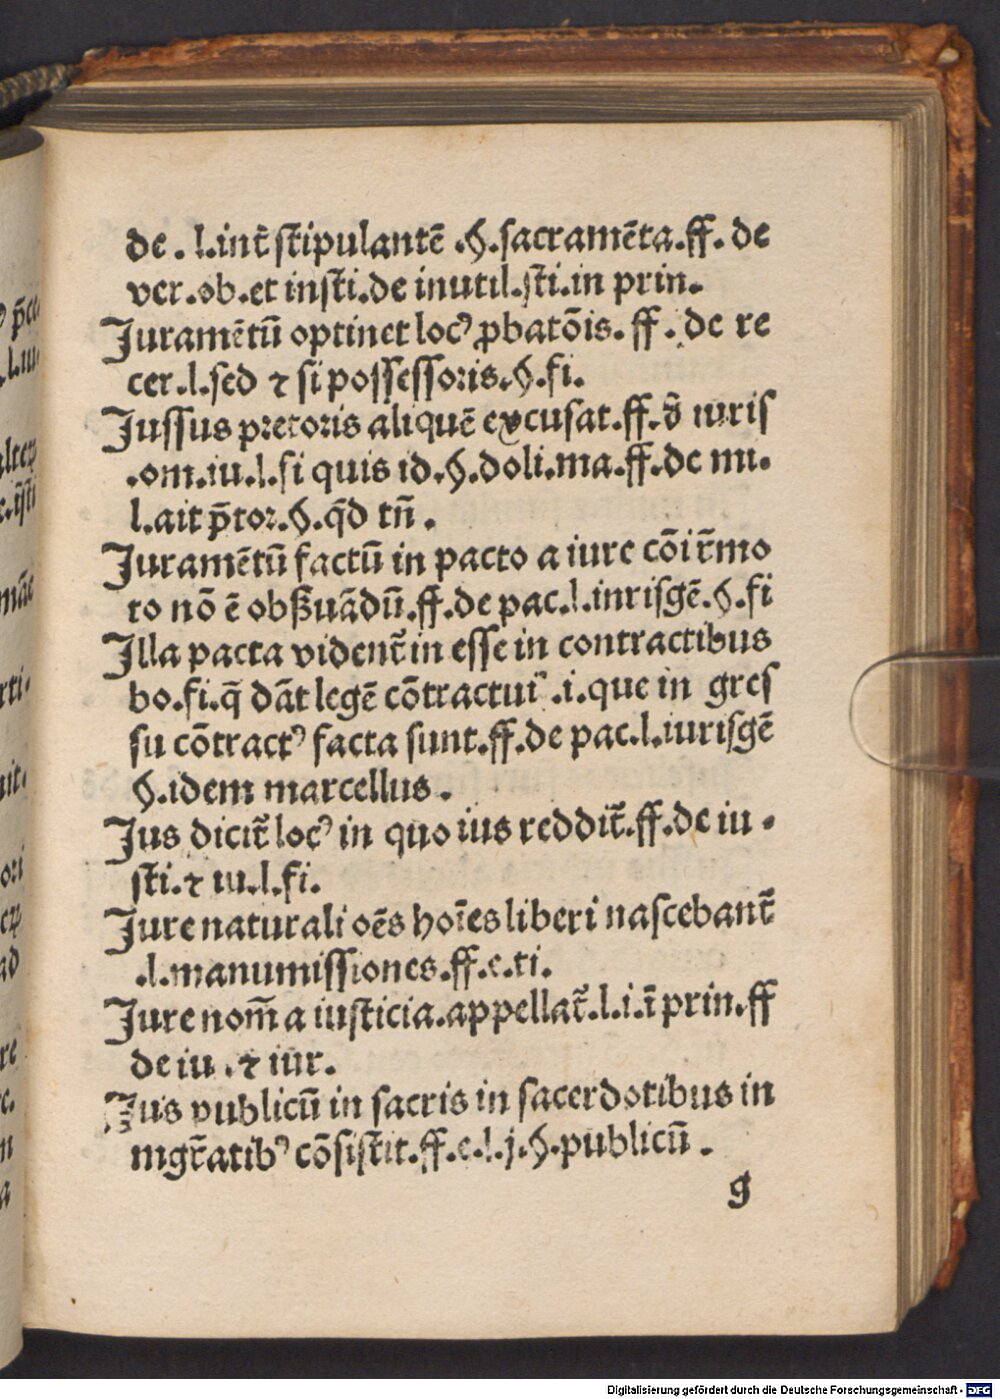 de . l.int̃ stipulantẽ .§.sacramẽta.ff. de
ver.ob.et insti.de inutil.sti.in prin.
Juramẽtũ optinet locꝰ ꝓbatõis. ff . de re
cer.l.sed ⁊ si possessoris.§.fi.
Jussus pretoris aliquẽ excusat.ff.d̃ iuris
.om.iu.l.si quis id.§.doli.ma.ff.de mi.
l.ait p̃tor.§.q̃d tñ .
Juramẽtũ factũ in pacto a iure cõi r̃mo
to nõ ẽ obẞuãdũ.ff.de pac.l.inrisgẽ.§.fi
Illa pacta vident̃ in esse in contractibus
bo.fi.q̃ dãt legẽ cõtractui .i.que in gres
su cõtractꝰ facta sunt.ff.de pac.l.iurisgẽ
§.idem marcellus .
Jus dicit̃ locꝰ in quo ius reddit̃.ff.de iu .
sti.⁊ iu.l.fi.
Jure naturali oẽs hoĩes liberi nascebant̃
.l.manumissiones.ff.e.ti.
Jure nom̃ a iusticia.appellat̃.l.i.ĩ prin.ff
de iu .⁊ iur.
Jus publicũ in sacris in sacerdotibus in
mgr̃atibꝰ cõsistit.ff.e.l.j.§.publicũ .
g
Digitalisierung gefördert durch die Deutsche Forschungsgemeinschaft - DFG